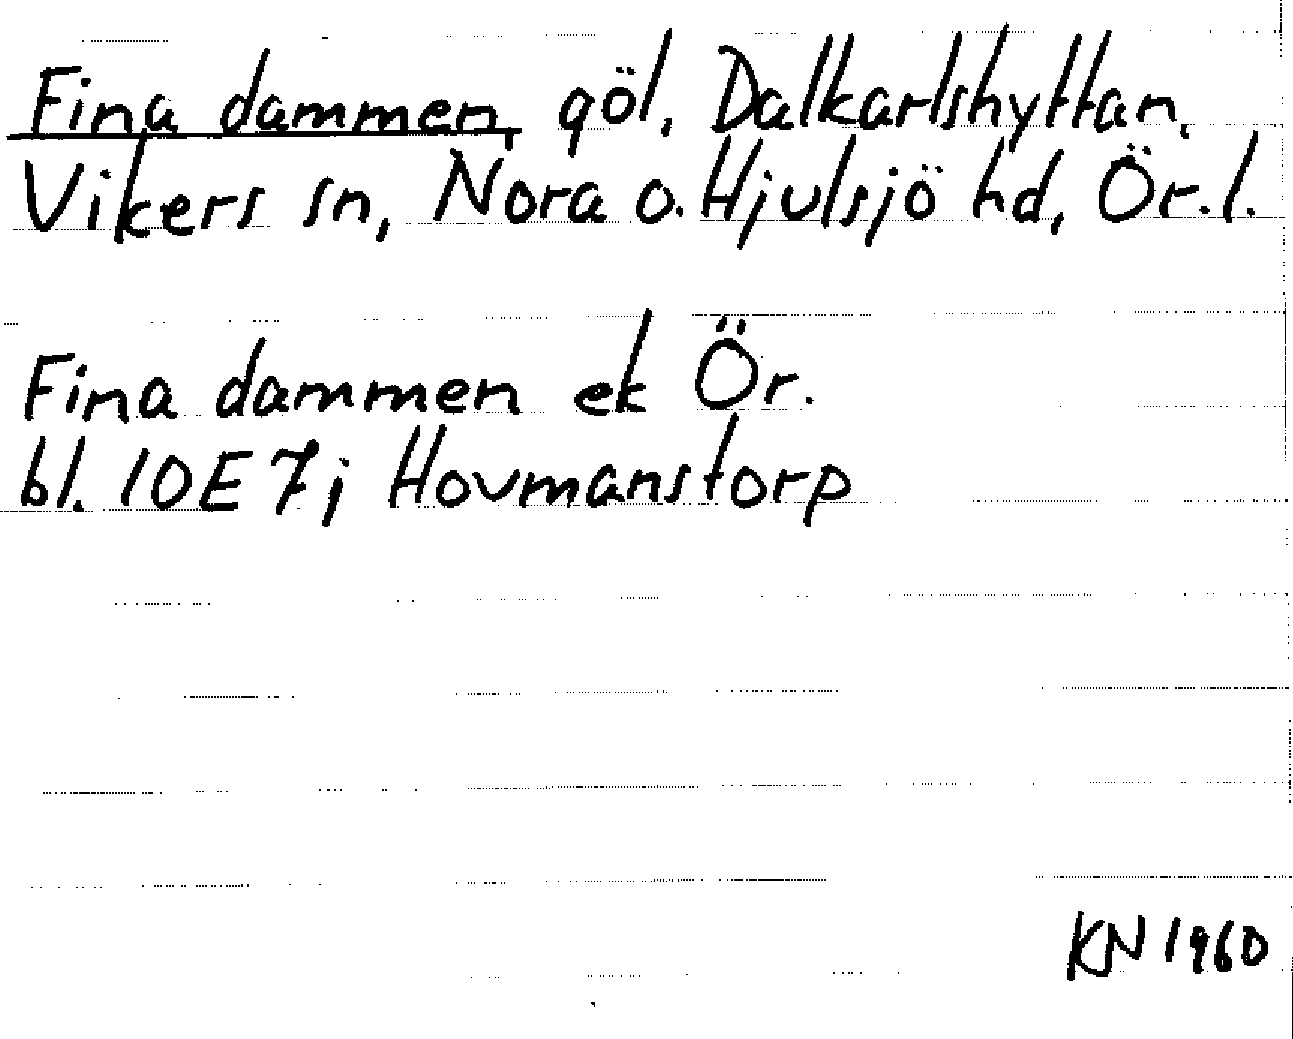 Fina dammen, göl, Dalkarlshyttan,
Vikers sn, Nora o. Hjulsjö hd, Ör. l.
Fina dammen ek Ör.
bl. 10E 7j Hovmanstorp
KN 1960